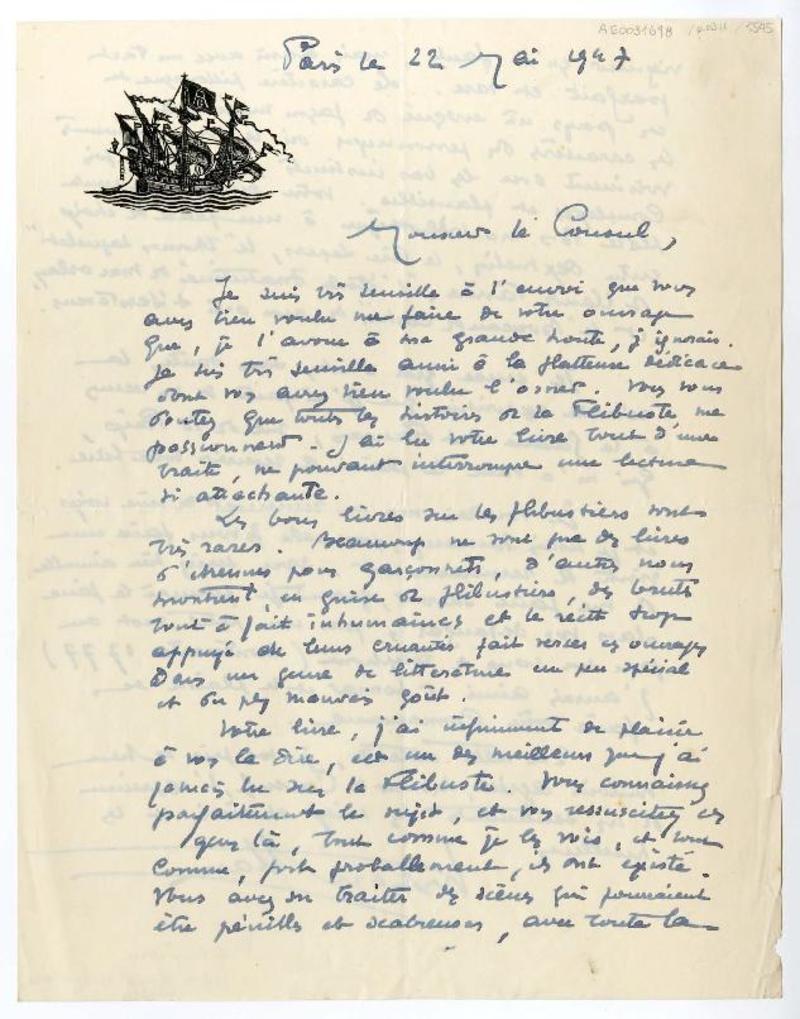 AE0031698 / 1545
Paris le 22 Mai 1947
Monsieur le Consul,
Je suis très sensible à l'envoi que vous
avez bien voulu me faire de votre ouvrage
que, je l'avoue à ma grande honte, j'ignorais.
Je suis très sensible aussi à la flatteuse dédicace
dont vous avez bien voulu l'orner. Vous vous
doutez que toutes les histoires de la Flibuste me
passionnent. J'ai lu votre livre tout d'une
traite, ne pouvant interrompre une lecture
si attachante.
Les bons livres sur les flibustiers sont
très rares. Beaucoup ne sont que des livres
d'étrennes pour garçonnets, d'autres nous
montrent, en guise de flibustiers, des brutes
tout à fait inhumaines et le récit trop
appuyé de leurs cruautés fait verser ces ouvrages
dans un genre de littérature un peu spécial
et du plus mauvais goût.
Votre livre, j'ai infiniment de plaisir
à vous le dire, est un des meilleurs que j'ai
jamais lu sur la Flibuste. Vous connaissez
parfaitement le sujet, et vous ressuscitez ces
gens là, tout comme je les vois, et tout
comme, fort probablement, ils ont existé.
Vous avez su traiter des scènes qui pourraient
être pénibles et scabreuses, avec toute la